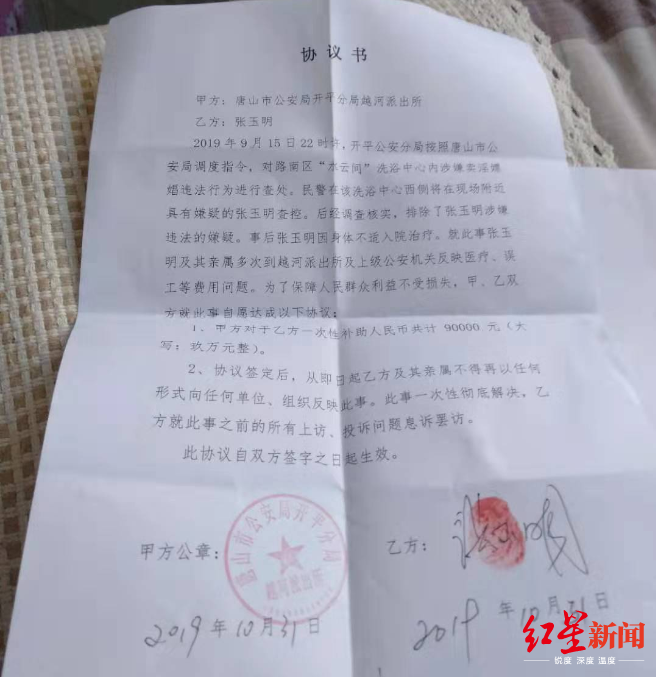 协议书
甲方：唐山市公安局开平分局越河派出所
乙方：张玉明
2019年9月15日22时许，开平公安分局按照唐山市公
安局调度指令，对路南区“水云间”洗浴中心内涉嫌卖淫嫖
娼违法行为进行查处。民警在该洗浴中心西侧将在现场附近
具有嫌疑的张玉明查控。后经调查核实，排除了张玉明涉嫌
违法的嫌疑。事后张玉明因身体不适入院治疗。就此事张玉
明及其亲属多次到越河派出所及上级公安机关反映医疗、误
工等费用问题。为了保障人民群众利益不受损失，甲、乙双
方就此事自愿达成以下协议：
1、甲方对于乙方一次性补助人民币共计 90000 元（大
写：玖万元整）。
2、协议签定后，从即日起乙方及其亲属不得再以任何
形式向任何单位、组织反映此事。此事一次性彻底解决。乙
方就此事之前的所有上访、投诉问题息诉罢访。
此协议自双方签字之日起生效。
甲方公章：
唐山市公安局开平分局
越河派出所
乙方：
张玉明
2019年10月31日
2019年10月31日
红星新闻
锐度 深度 温度